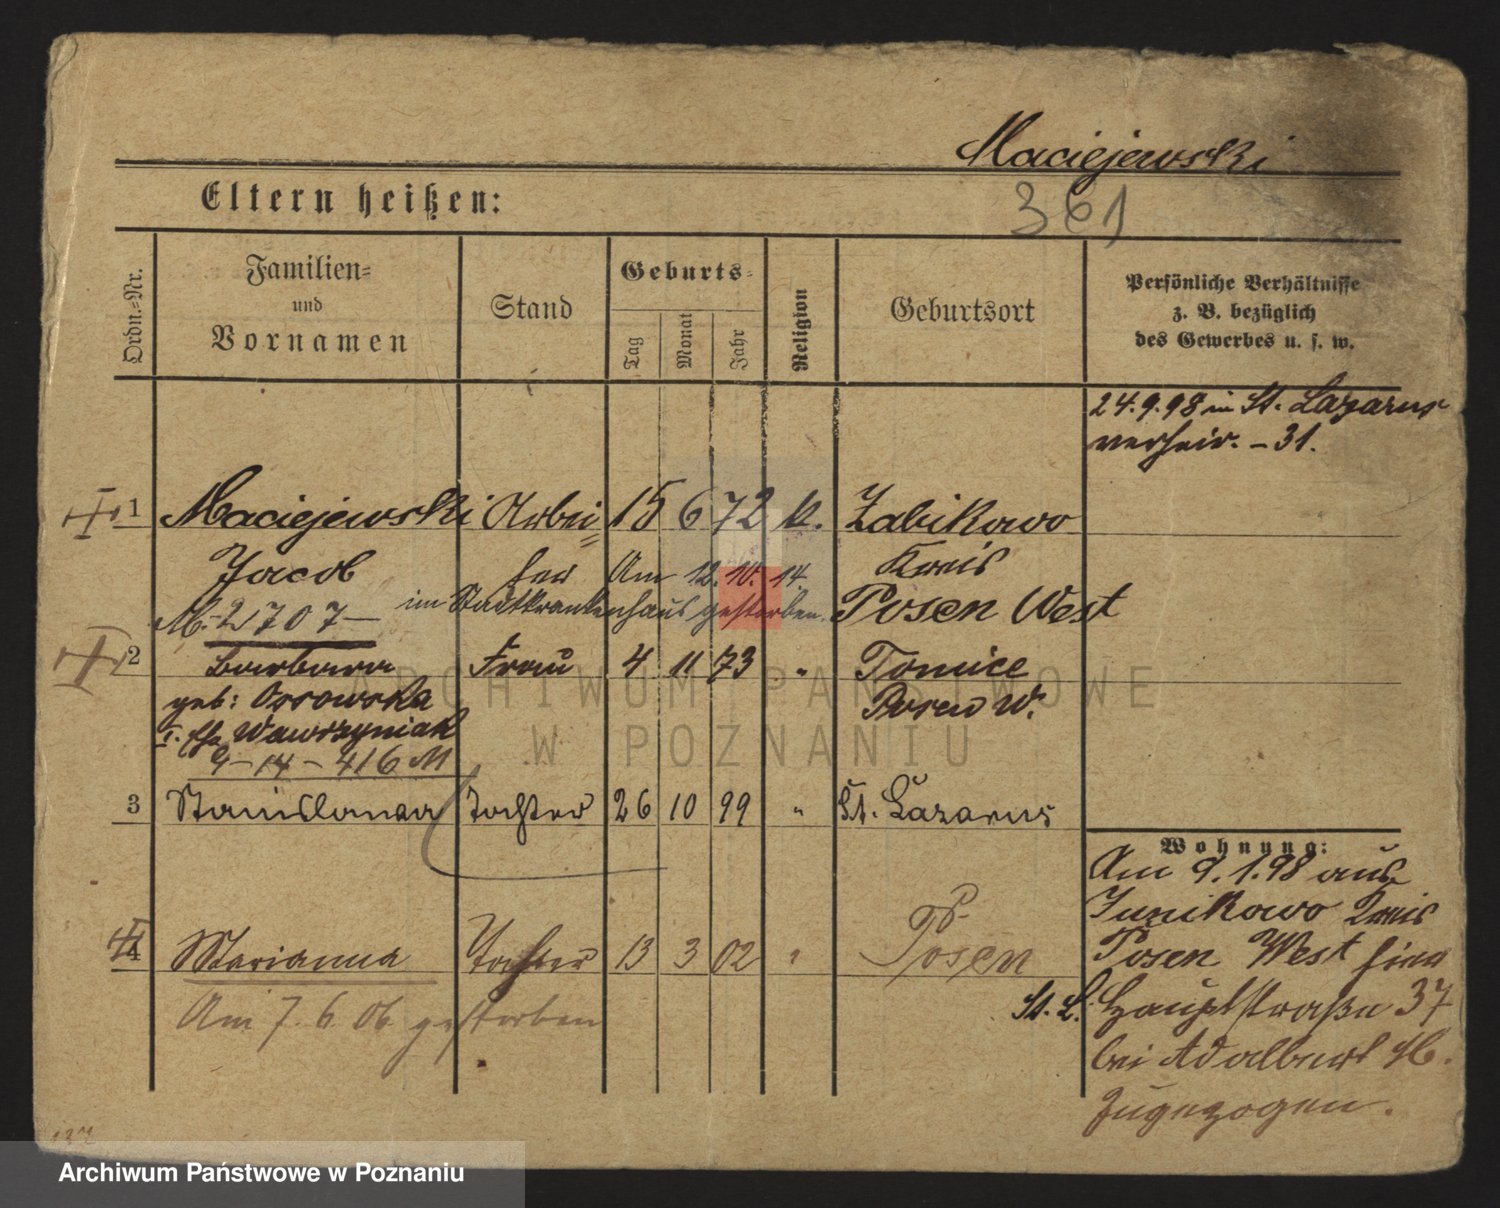 Maciejewski
361
Eltern heißen:
Ordn.-Nr.
Familien- und Vornamen
Stand
Geburts-
Tag
Monat
Jahr
Religion
Geburtsort
Persönliche Verhältnisse
z. B. bezüglich
des Gewerbes u. s. w.
24.9.98 in St. Lazarus
verheir. – 31.
1 Maciejewski Arbei= 15 6 72 k. Zabikowo
Jacob ter Am 12. 10. 14. Kreis
im Stadtkrankenhaus gestorben. Posen West
M. 2707 –
2 Barbara Frau 4 11 73 " Tomice
geb: Ossowska Posen W.
I. Ehe Wawrzyniak
9 – 14 – 416 M
3 Stanislawa Tochter 26 10 99 " St. Lazarus
Wohnung:
Am 9.1.98 aus
Junikowo Kreis
4 Marianna Tochter 13 3 02 " Posen
Posen West hier
Am 7. 6. 06. gestorben
St. L. Hauptstraße 37
bei Adalbert M.
zugezogen.
137
ARCHIWUM PAŃSTWOWE
W POZNANIU
Archiwum Państwowe w Poznaniu